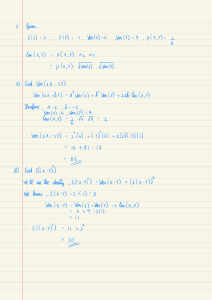 2. Given
E(X) = 2 , E(Y) = -1 , Var(X) = 4 , Var(Y) = 9 , ρ(X,Y) = 1/6
Cov(X,Y) = ρ(X,Y) σx σy
= ρ(X,Y) √Var(X) √Var(Y)
Find Var(2X - 3Y)
Var(aX + bY) = a² Var(X) + b² Var(Y) + 2ab Cov(X,Y)
Therefore, a = 2 , b = -3
Var(X) = 4 , Var(Y) = 9
Cov(X,Y) = 1/6 √4 √9 = 1
∴ Var(2X - 3Y) = 2²(4) + (-3)²(9) + 2(2)(-3)(1)
= 16 + 81 - 12
= 85
Find E((X-Y)²)
the identity, E((X-Y)²) = Var(X-Y) + (E(X-Y))²
We know, E(X-Y) = 2-(-1) = 3
Var(X-Y) = Var(X) + Var(Y) - 2 Cov(X,Y)
= 4 + 9 - 2(1)
= 11
∴ E((X-Y)²) = 11 + 3²
= 20